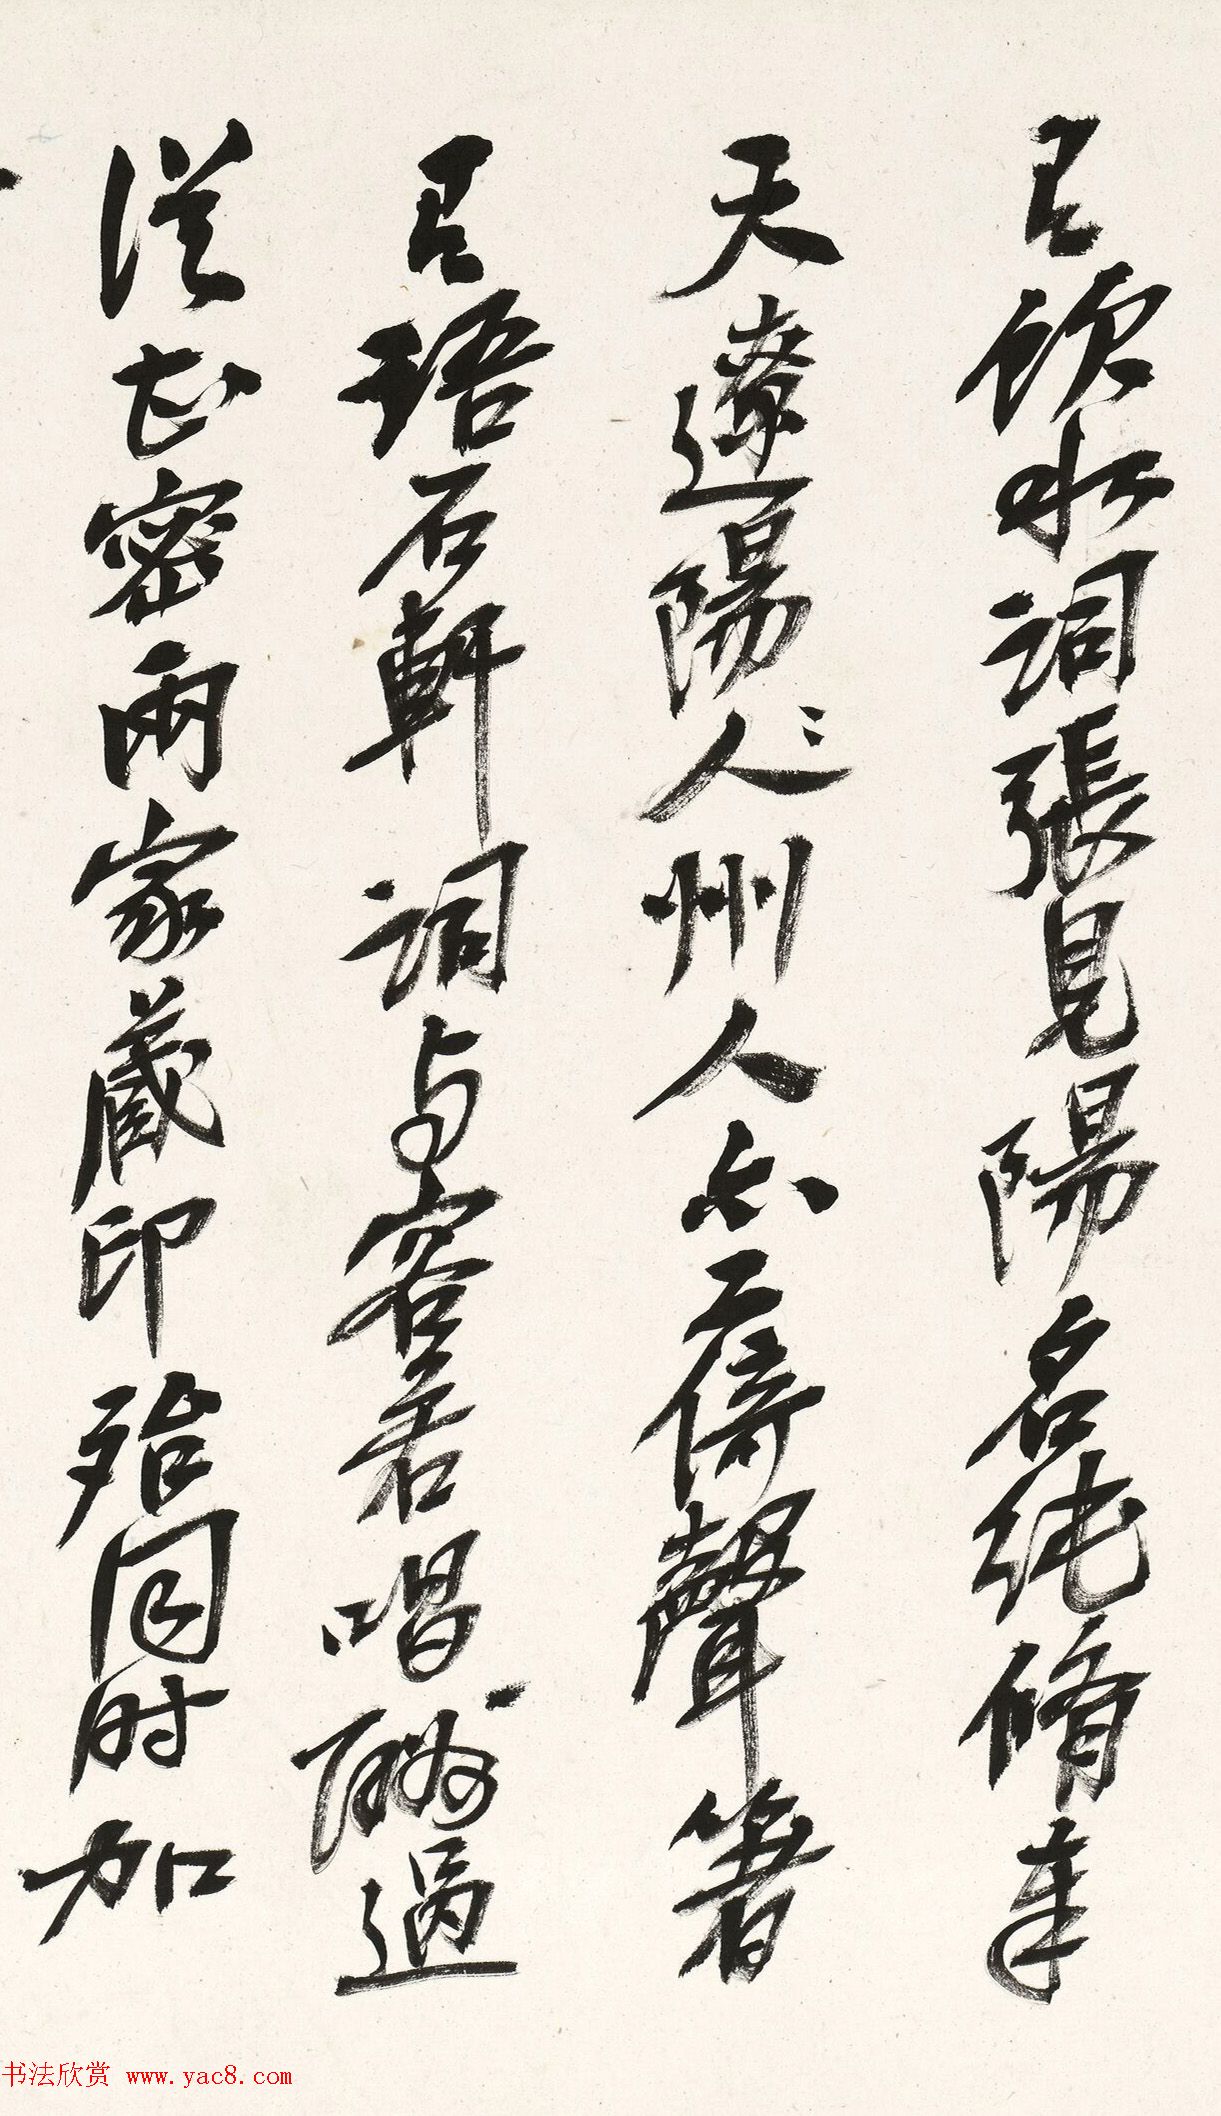 有飲水詞張見陽名純脩奉
天遼陽人〻州人亦工倚聲著
有語石軒詞与容若唱酬過
從甚密兩家藏印殆同時加
书法欣赏 www.yac8.com